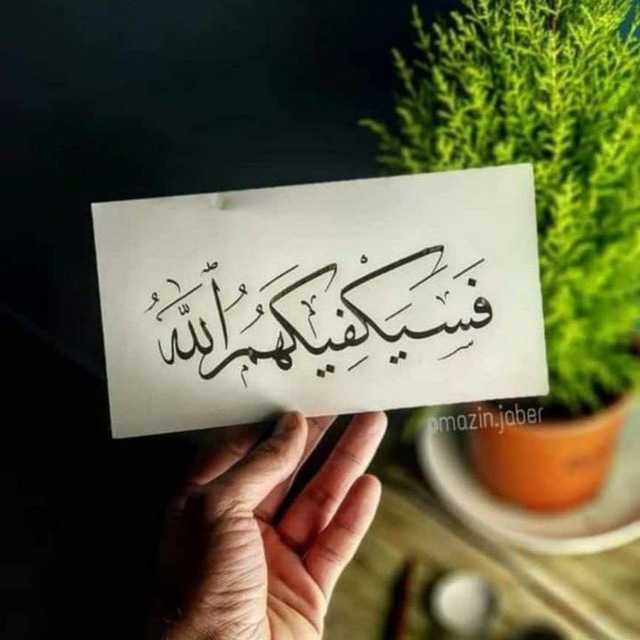 فَسَيَكْفِيكَهُمُ اللَّهُ
@mazin.jaber